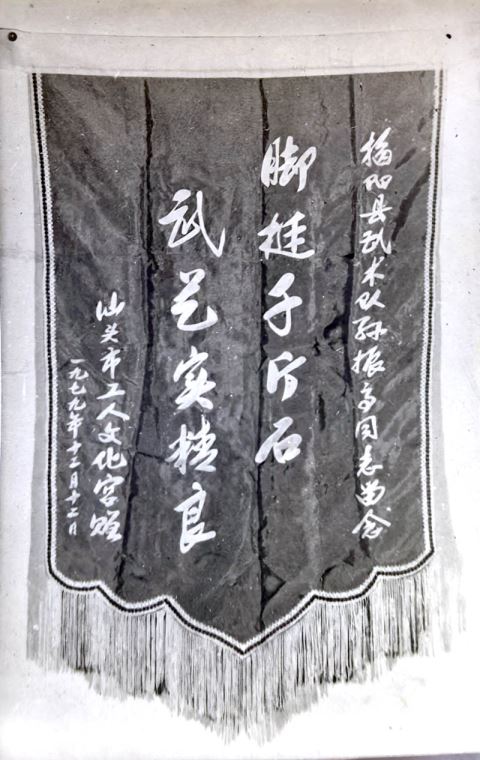 揭阳县武术队孙振高同志留念
脚挺千斤石
武艺实精良
汕头市工人文化宫赠
一九七九年十二月十二日